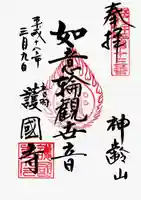 奉拝
神齢山
如意輪観世音
護國寺
平成十八年
三月九日